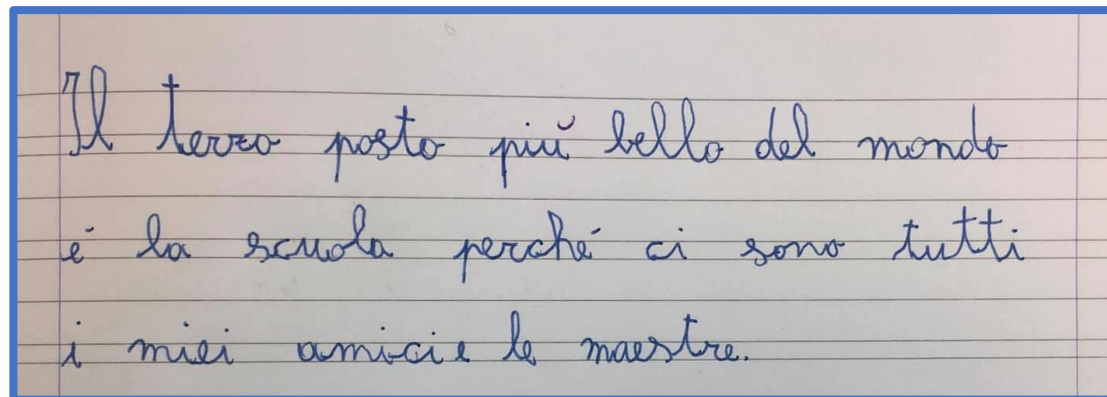 Il terzo posto più bello del mondo
é la scuola perché ci sono tutti
i miei amici e le maestre.